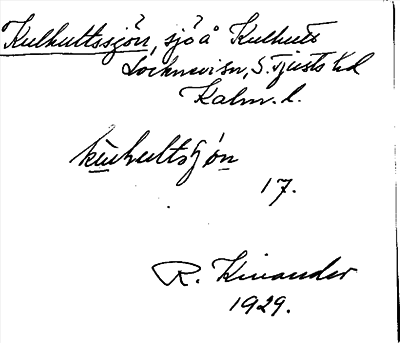 Kulhultssjön, sjö å Kulhult
Locknevi sn, S. Tjusts hd
Kalm. l.
kulhultsjön
17.
R. Kinander
1929.